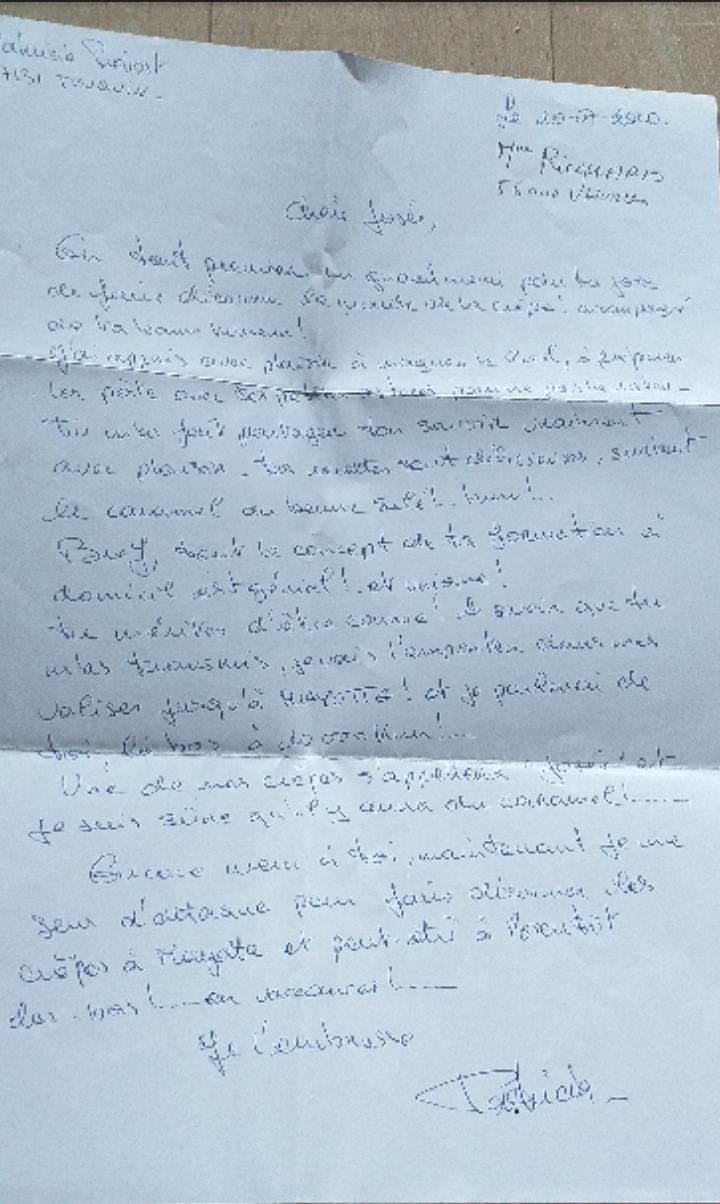 Patricia Provost
Le 20-07-2020.
Mme
Chère Josée,
En tout premier un grand merci pour ta joie
de faire découvrir le monde de la crêpe! accompagné
de ta bonne humeur!
J'ai appris avec plaisir à le, à préparer
les avec
Tu m'as fait partager ton savoir vraiment
avec plaisir. Tes recettes sont délicieuses, surtout
le caramel au beurre salé!.. hum!..
Bref, tout le concept de ta formation à
domicile est génial! et unique!
tu mérites d'être connue! le savoir que tu
m'as transmis, je vais l'emporter dans mes
valises jusqu'à MAYOTTE! et je parlerai de
toi, là bas à !...
Une de mes crêpes s'appellera "Josée" et
je suis sûre qu'il y aura du caramel!......
Encore merci à toi, maintenant je me
sens d'attaque pour faire découvrir les
crêpes à Mayotte et peut-être à bientôt
là-bas!.... au !.....
Je t'embrasse
Patricia